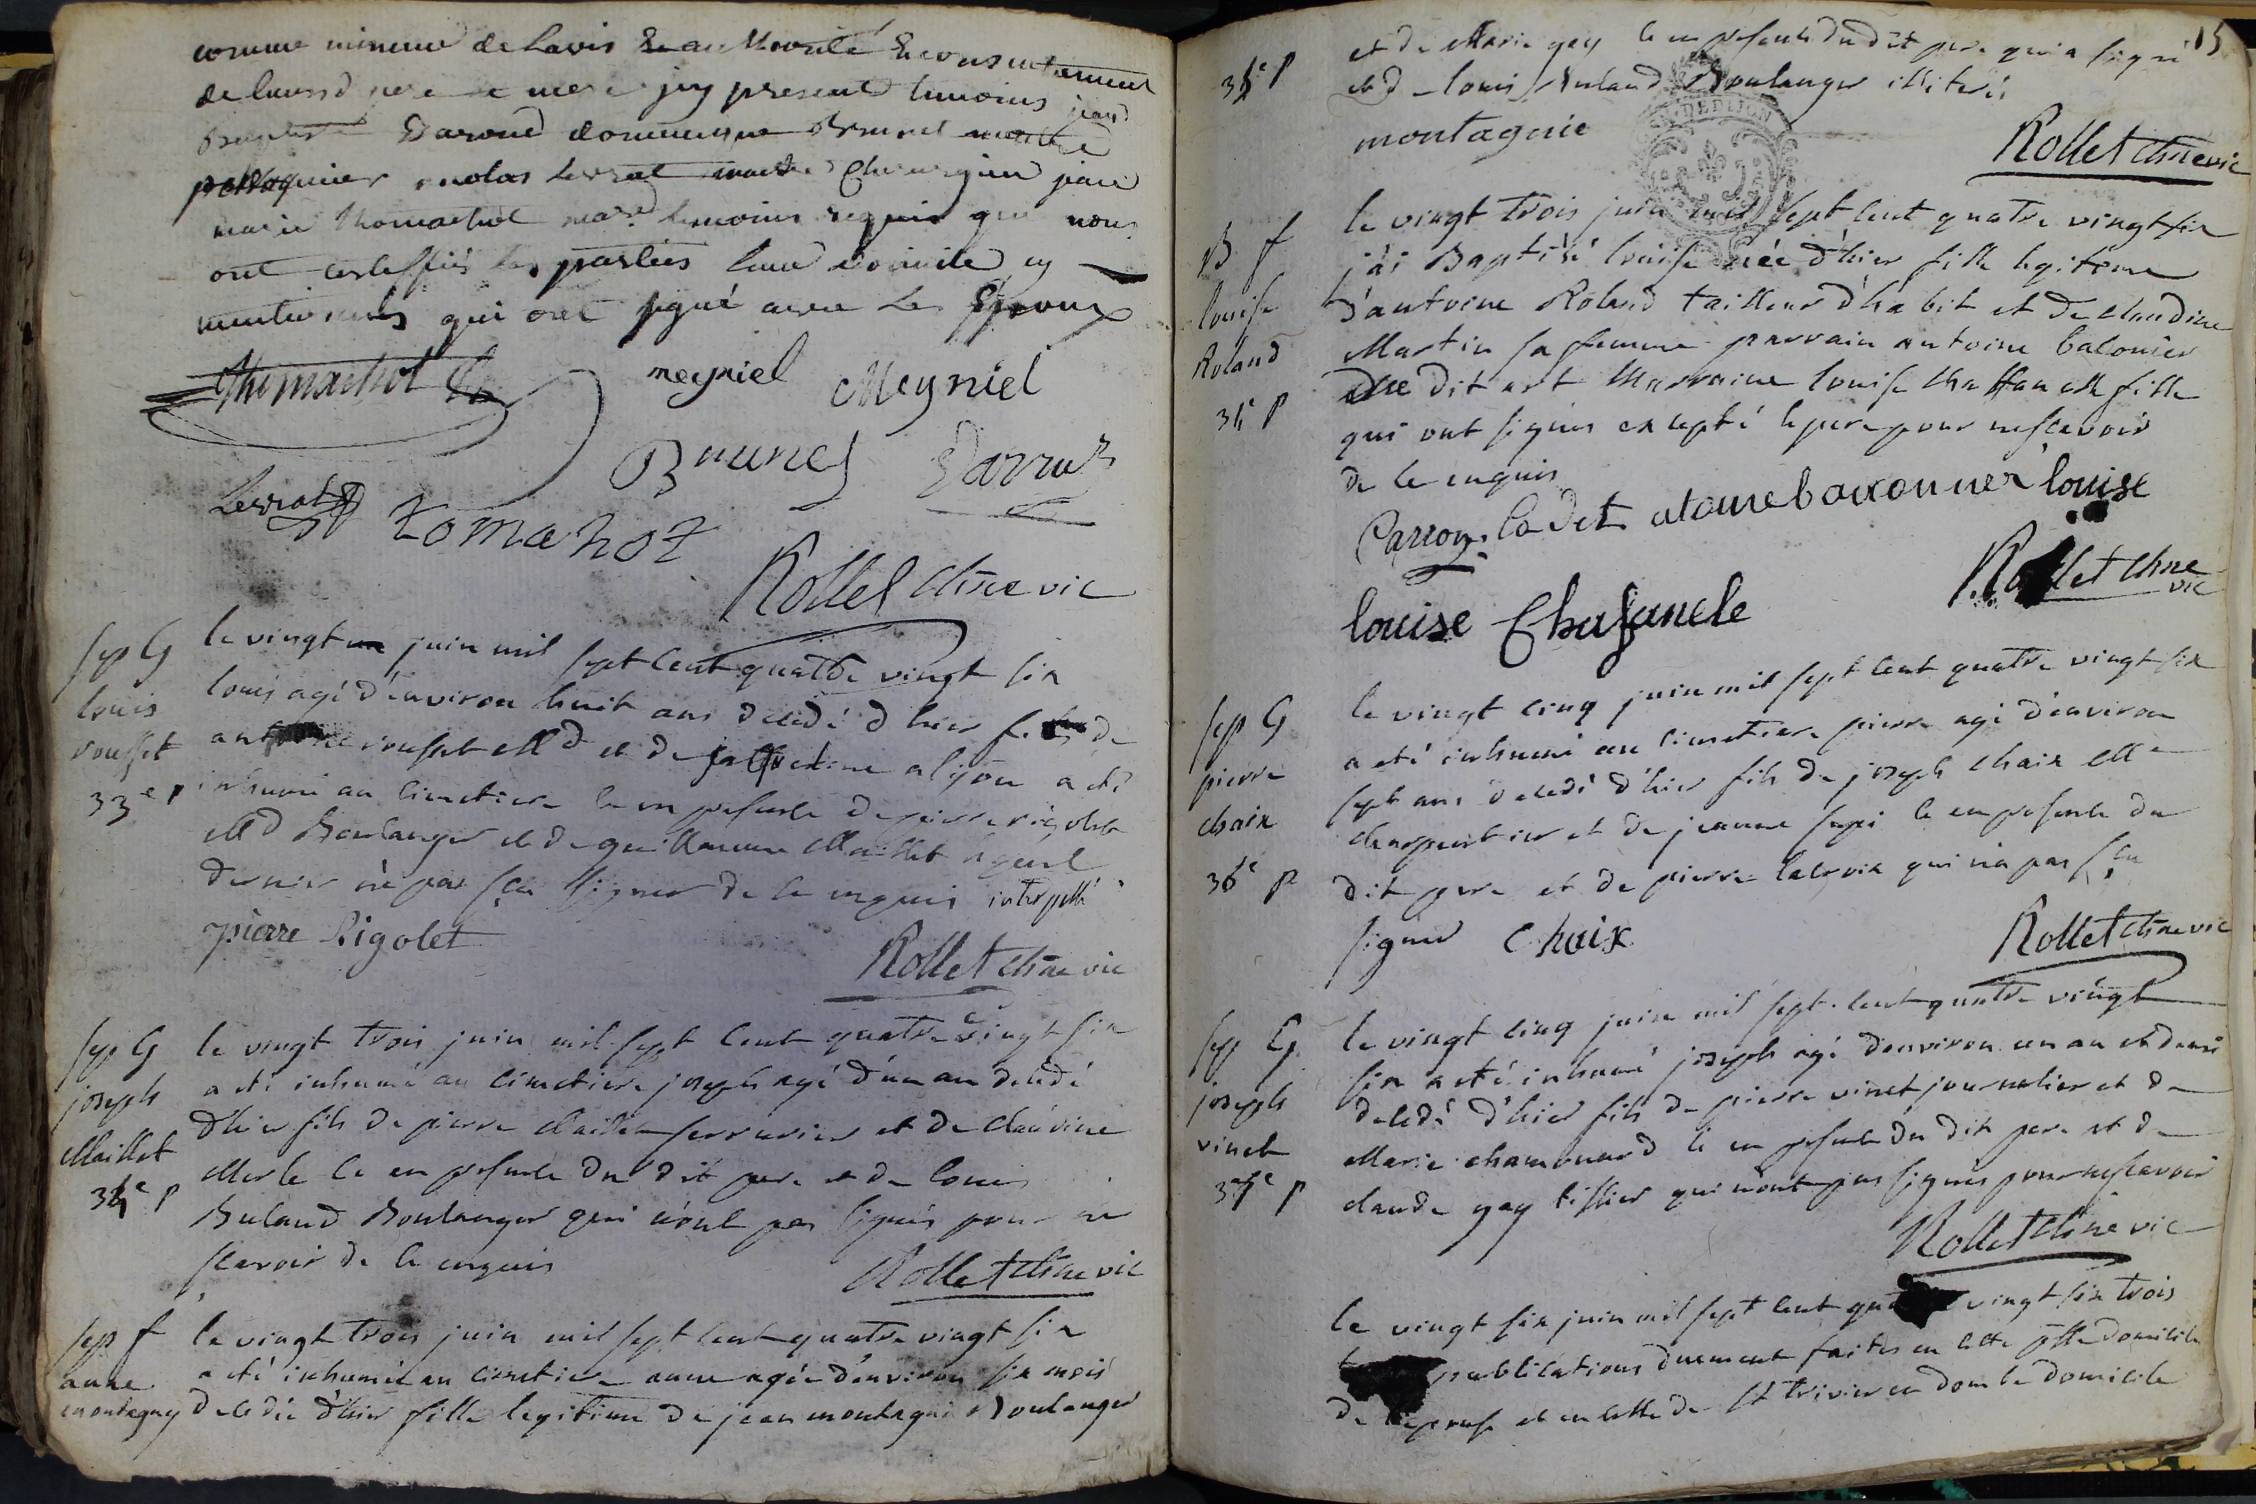 comme mineure de lavis et authorité consentement
de leurs pere et mere icy present temoins jean
Baptiste Daroud Brunet maitre
perruquier nicolas Lerrat maitre Chirurgien jean
marie thomachot mard temoins requis qui nous
ont certiffiés les parties leur domicile cy
mentionnés qui ont signé avec les Epoux
Thomachot
meyniel Meyniel
Brunet Darrud
Lerrat tomahot
Rollet chne vic
sep G
louis
rousset
33e p
le vingt un juin mil sept cent quatre vingt six
louis agé d'environ huit ans decedé d'hier fils de
antoine rousset Md et de alijon a eté
inhumé au cimetiere ce en presence de pierre rigolet
Md Boulanger et de guillaume Maillet lequel
dernier n'a pas sçu signer de ce enquis interpellé
pierre Rigolet
Rollet chne vic
sep G
joseph
Maillet
34e p
le vingt trois juin mil sept cent quatre vingt six
a eté inhumé au cimetiere joseph agé d'un an decedé
d'hier fils de pierre Maillet serrurier et de claudine
Merle ce en presence du dit pere et de louis
Buland Boulanger qui n'ont pas signés pour ne
scavoir de ce enquis
Rollet chne vic
sep f
anne
montagny
le vingt trois juin mil sept cent quatre vingt six
a eté inhumée au cimetiere anne agée d'environ six mois
decedée d'hier fille legitime de jean montagnie Boulanger
15
35e p
et de Marie gay ce en presence du dit pere qui a signé
et de louis Buland Boulanger illiteré
montagnie
Rollet chne vic
B f
louise
Roland
34 p
le vingt trois juin mil sept cent quatre vingt six
j'ai Baptisé louise née d'hier fille legitime
d'antoine Roland tailleur d'habit et de claudine
Martin sa femme parrain antoine
dit art Marraine louise chaffanelle fille
qui ont signés excepté le pere pour ne scavoir
de ce enquis
Carron Cadet louise
Rollet chne vic
louise Chafanele
sep G
pierre
chaix
36e p
le vingt cinq juin mil sept cent quatre vingt six
a eté inhumé au cimetiere pierre agé d'environ
sept ans decedé d'hier fils de joseph chaix Me
charpentier et de jeanne ce en presence du
dit pere et de pierre lacroix qui n'a pas sçu
signer Chaix
Rollet chne vic
sep G
joseph
vinet
37e p
le vingt cinq juin mil sept cent quatre vingt
six a eté inhumé joseph agé d'environ un an et demi
decedé d'hier fils de pierre vinet journalier et de
Marie chamonard ce en presence du dit pere et de
claude gay tissier qui n'ont pas signés pour ne scavoir
Rollet chne vic
le vingt six juin mil sept cent vingt six trois
publications duement faites en cette psse domicile
de l'epouse et en celle de St trivier en dombe domicile